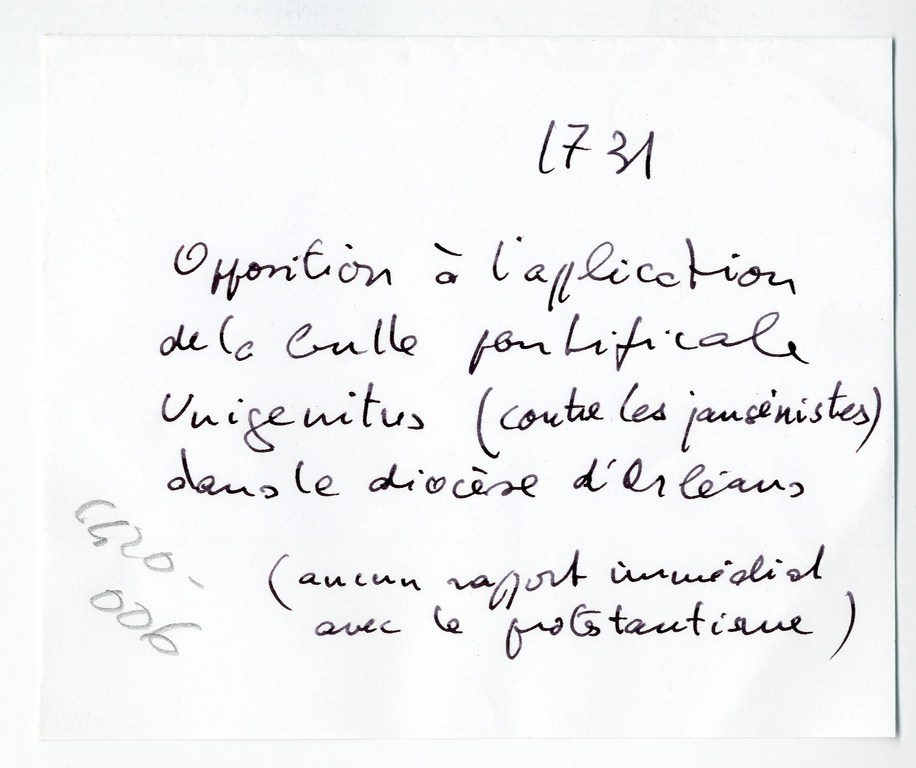 1731
Opposition à l'application
de la bulle pontificale
Unigenitus (contre les jansénistes)
dans le diocèse d'Orléans
(aucun rapport immédiat
avec le protestantisme)
006